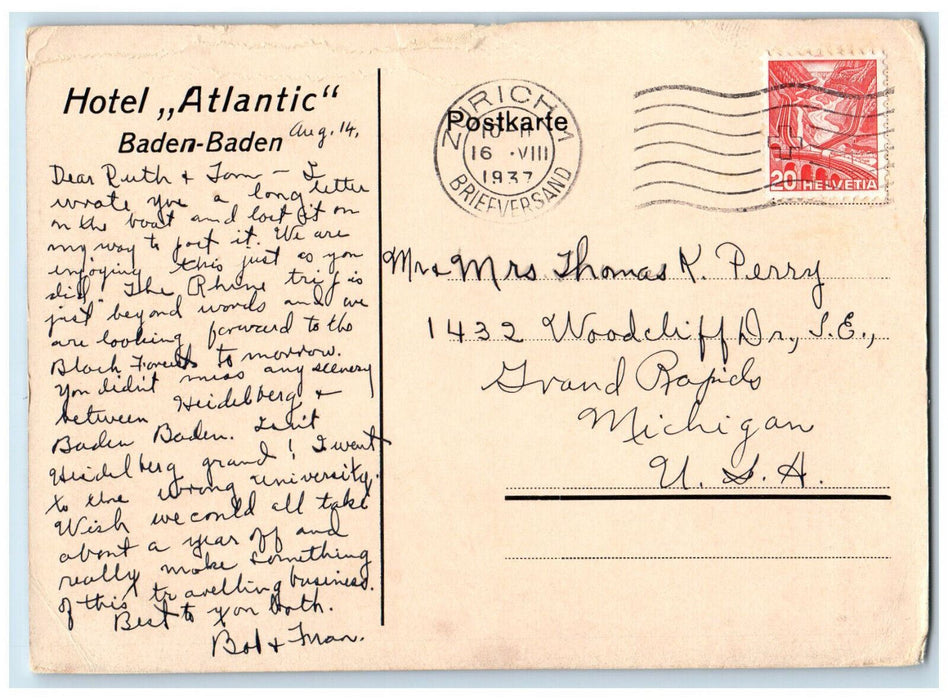 Hotel „Atlantic“
Baden-Baden
Aug. 14,
Dear Ruth & Tom – I
wrote you a long letter
on the boat and lost it on
my way to post it. We are
enjoying this just as you
did. The Rhine trip is
just beyond words and we
are looking forward to the
Black Forest to morrow.
You didn't miss any scenery
between Heidelberg &
Baden Baden. Isn't
Heidelberg grand! I went
to the wrong university.
Wish we could all take
about a year off and
really make something
of this travelling business.
Best to you both.
Bob & Fran.
ZÜRICH 1
Postkarte
16 ·VIII
1937
BRIEFVERSAND
20 HELVETIA
Mr & Mrs Thomas K. Perry
1432 Woodcliff Dr., S.E.,
Grand Rapids
Michigan
U. S. A.